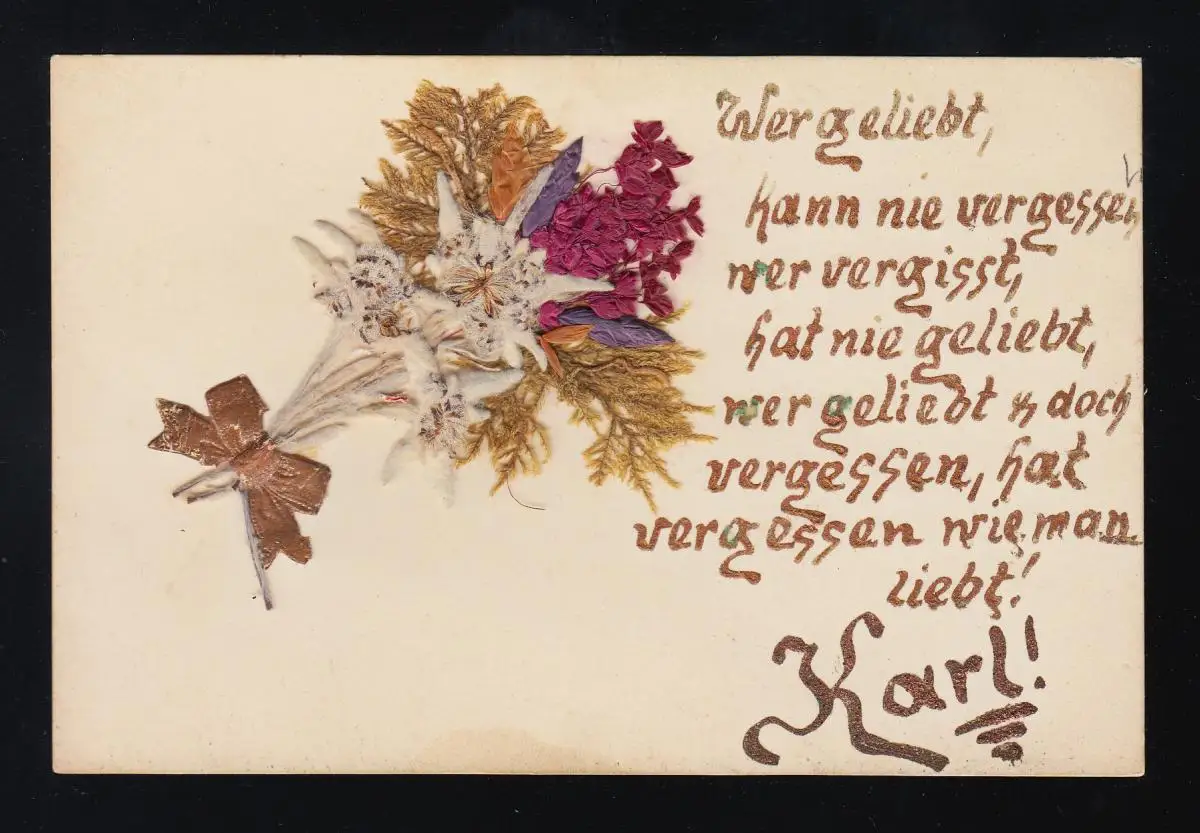 Wer geliebt,
kann nie vergessen
wer vergisst,
hat nie geliebt,
wer geliebt u doch
vergessen, hat
vergessen wie man
liebt!
Karl!